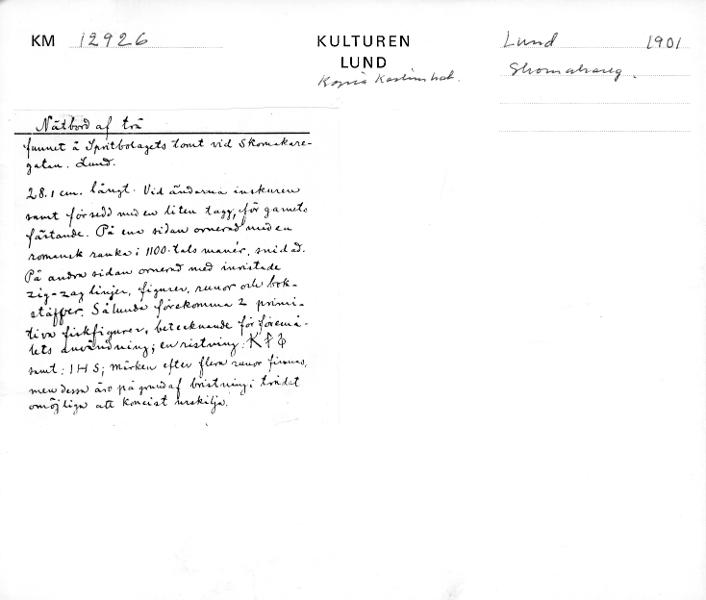 KM 12926
KULTUREN
LUND
Kopia
Lund 1901
Skomakareg.
Nätbord af trä
funnet å Spritbolagets tomt vid Skomakare-
gatan. Lund.
28.1 cm. långt. Vid ändarna inskuren
samt försedd med en liten tagg, för garnets
fästande. På ena sidan ornerad med en
romansk ranka i 1100-tals manér, snidad.
På andra sidan ornerad med inristade
zig-zag linjer, figurer, runor och bok-
stäfver. Sålunda förekomma 2 primi-
tiva fiskfigurer, betecknande för föremå-
lets användning; en ristning: K ᚠ ᛰ
samt: IHS; märken efter flera runor finnas,
men dessa äro på grund af bristning i trädet
omöjliga att koncist urskilja.